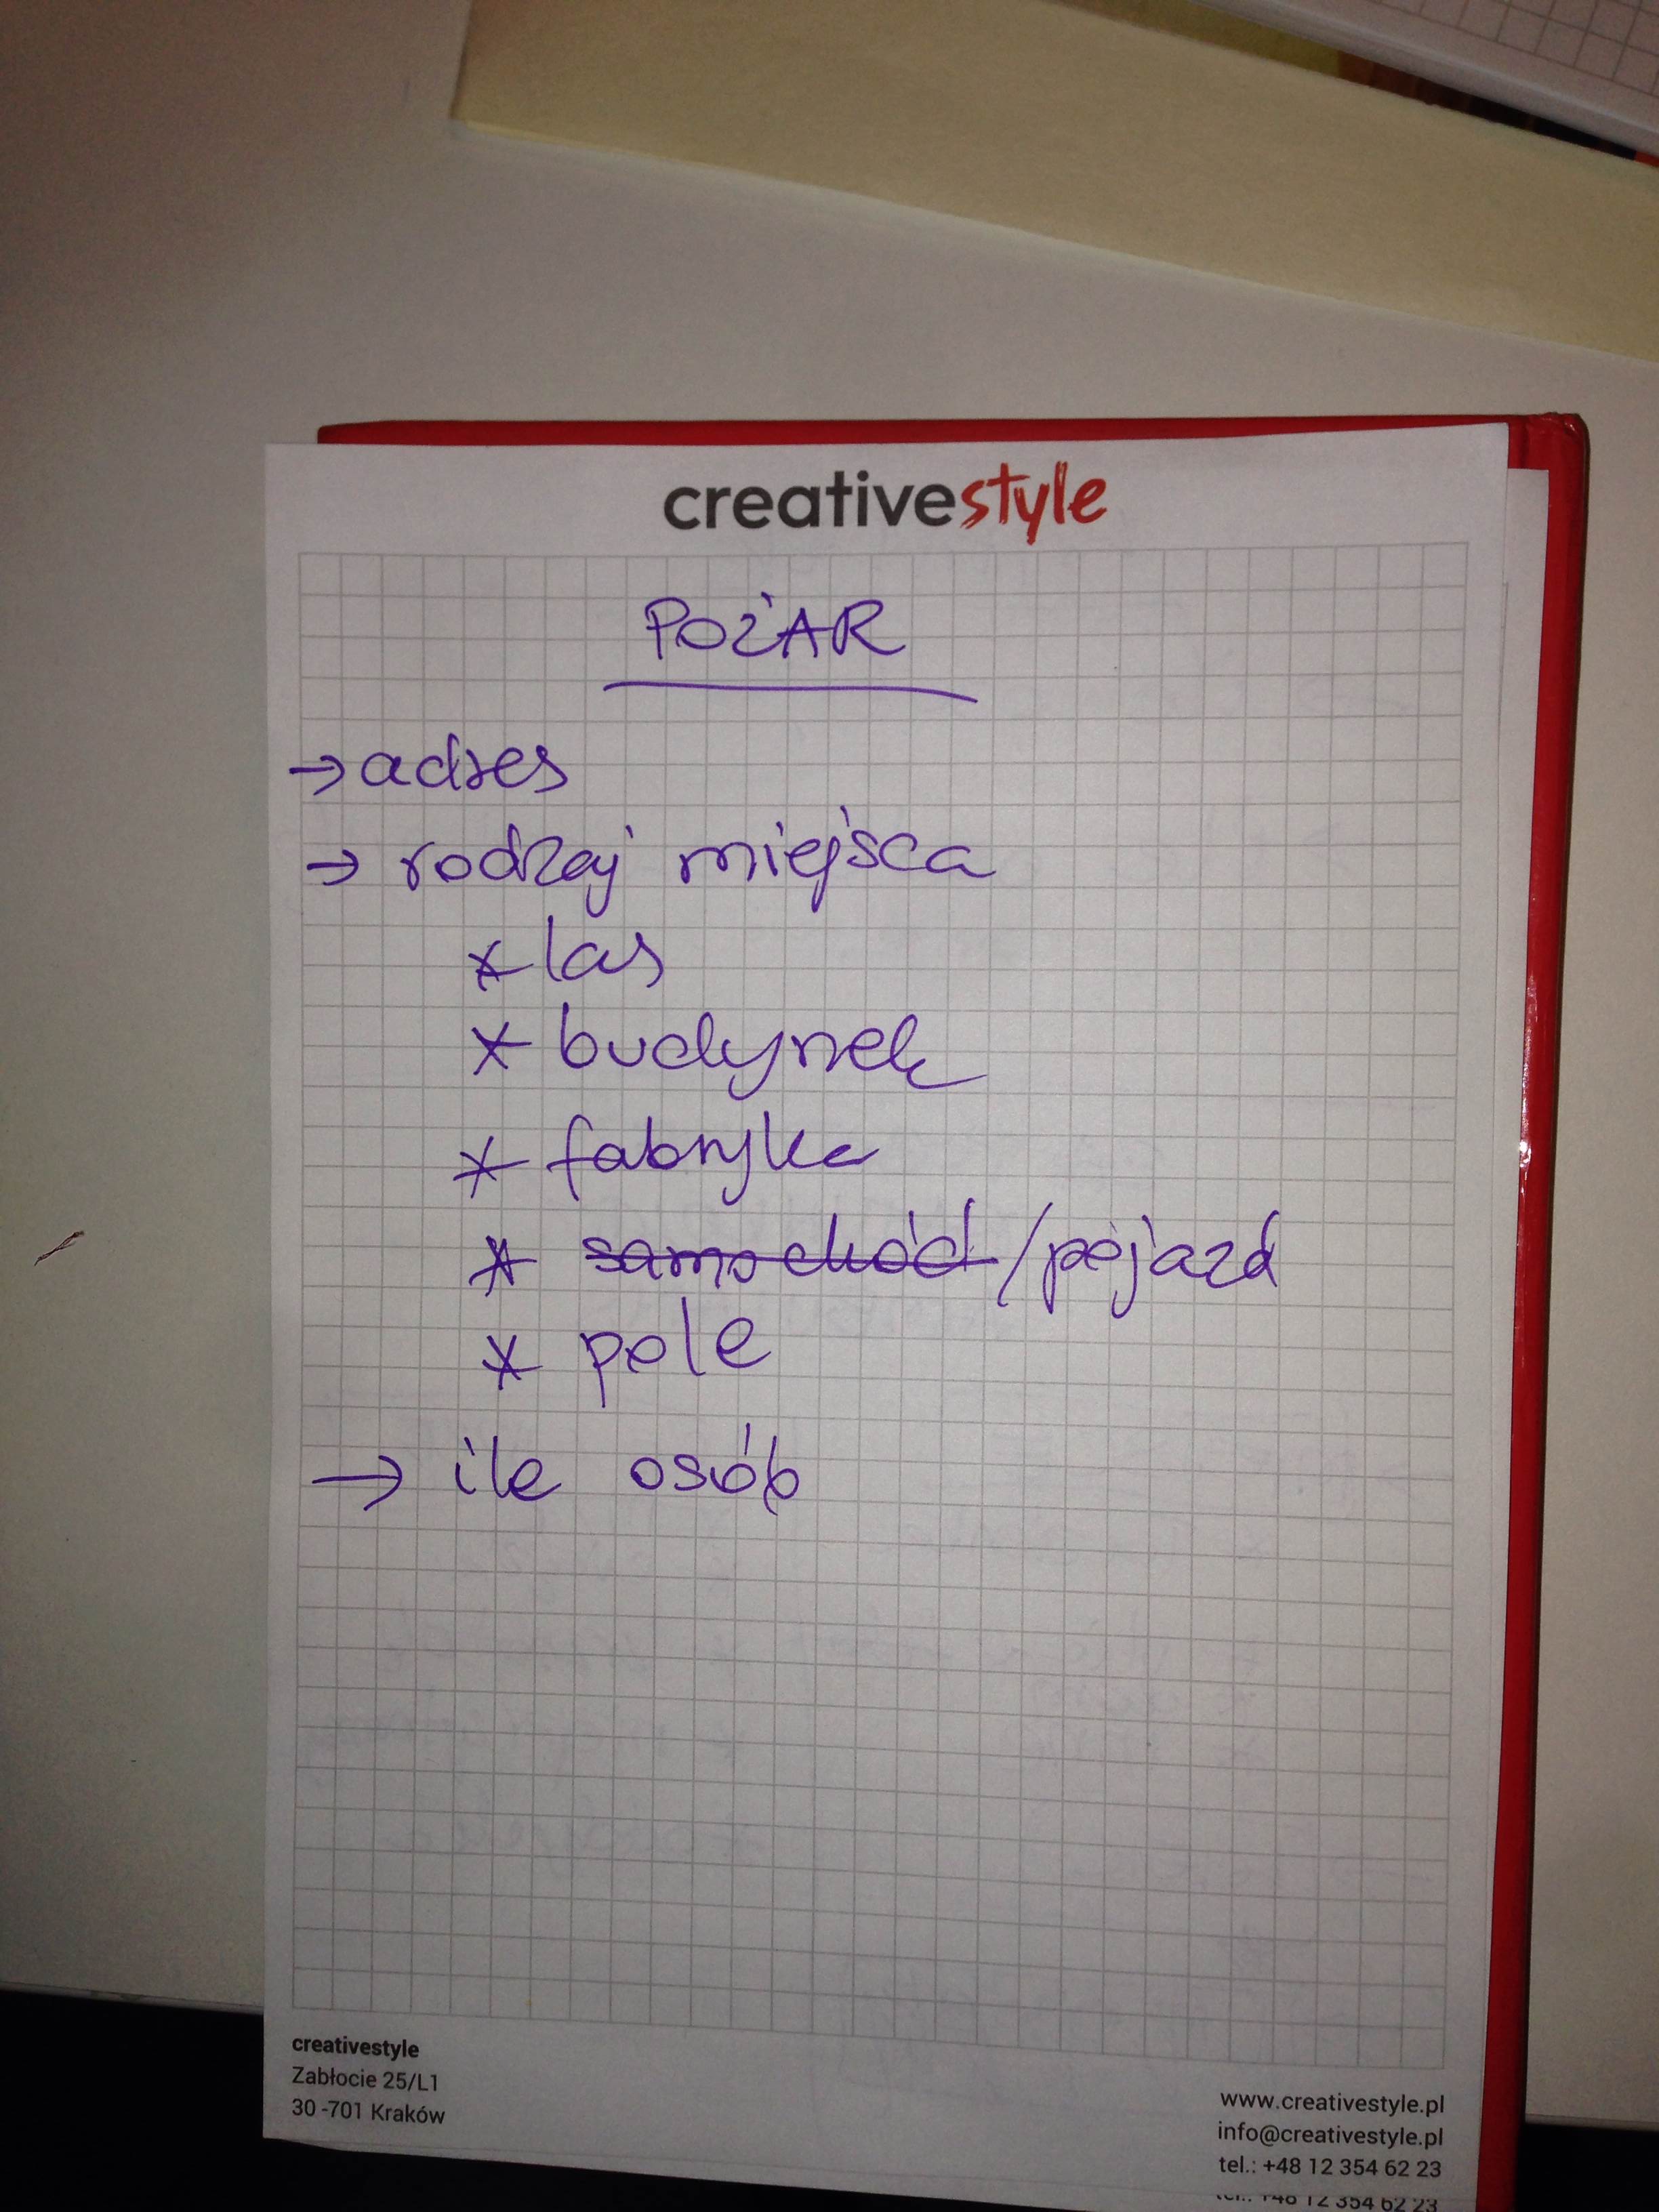 creativestyle
POŻAR
→ adres
→ rodzaj miejsca
* las
* budynek
* fabryka
* samochód/pojazd
* pole
→ ile osób
creativestyle
Zabłocie 25/L1
30 -701 Kraków
www.creativestyle.pl
info@creativestyle.pl
tel.: +48 12 354 62 23
tel.: +48 12 354 62 23